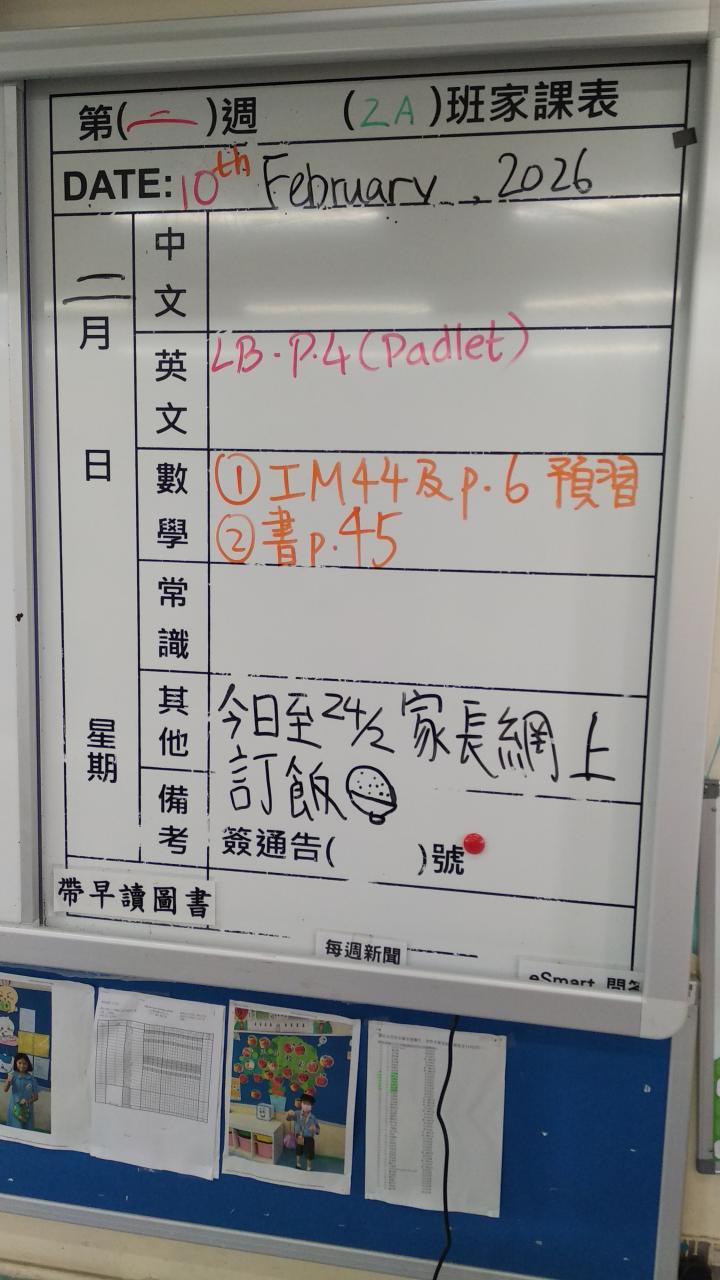 第(二)週 (2A)班家課表
DATE: 10th February, 2026
二月 日 星期
中文
英文 LB. P.4 (Padlet)
數學 ① 工M44及p.6 預習
② 書p.45
常識
其他 今日至24/2 家長網上
訂飯
備考 簽通告( )號
帶早讀圖書
每週新聞
eSmart 問答